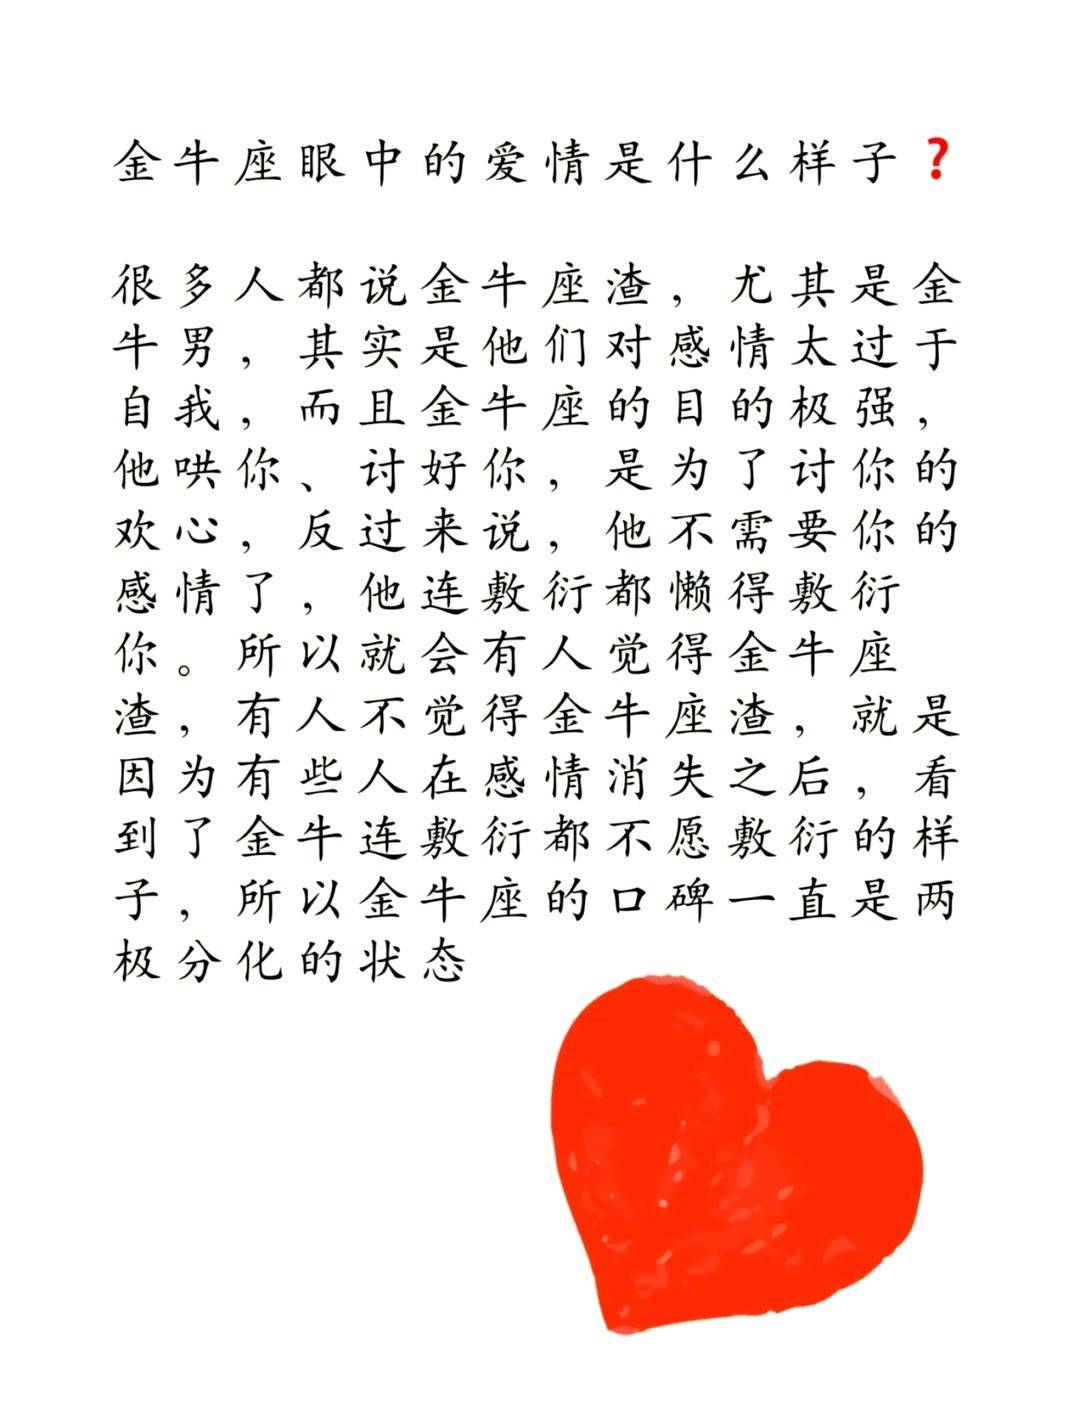 金牛座眼中的爱情是什么样子？
很多人都说金牛座渣，尤其是金
牛男，其实是他们对感情太过于
自我，而且金牛座的目的极强，
他哄你、讨好你，是为了讨你的
欢心，反过来说，他不需要你的
感情了，他连敷衍都懒得敷衍
你。所以就会有人觉得金牛座
渣，有人不觉得金牛座渣，就是
因为有些人在感情消失之后，看
到了金牛连敷衍都不愿敷衍的样
子，所以金牛座的口碑一直是两
极分化的状态